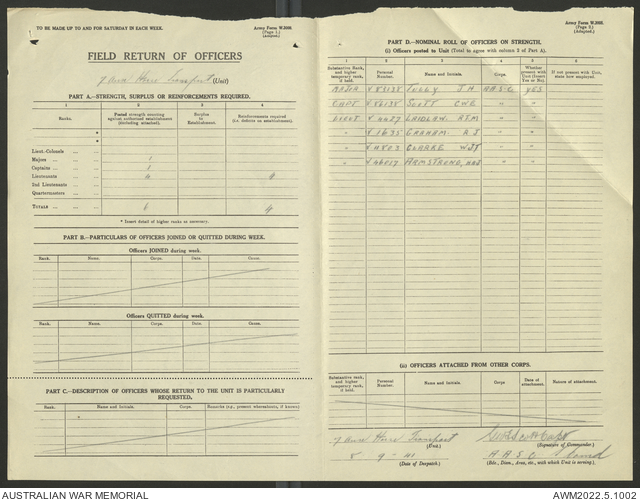 TO BE MADE UP TO AND FOR SATURDAY IN EACH WEEK.
Army Form W.3008.
(Page 1.)
(Adapted.)
FIELD RETURN OF OFFICERS
Transport (Unit)
PART A.—STRENGTH, SURPLUS OR REINFORCEMENTS REQUIRED.
1 2 3 4
Ranks. Posted strength counting against authorized establishments (including attached). Surplus to Establishment. Reinforcements required (i.e. deficits on establishment).
*
*
Lieut.-Colonels ... ...
Majors ... ... 1
Captains ... ... 1
Lieutenants ... ... 4 4
2nd Lieutenants ...
Quartermasters ...
TOTALS ... ... 6 4
* Insert detail of higher ranks as necessary.
PART B.—PARTICULARS OF OFFICERS JOINED OR QUITTED DURING WEEK.
Officers JOINED during week.
Rank. Name. Corps. Date. Cause.
Officers QUITTED during week.
Rank. Name. Corps. Date. Cause.
PART C.—DESCRIPTION OF OFFICERS WHOSE RETURN TO THE UNIT IS PARTICULARLY REQUESTED.
Rank. Name and Initials. Corps. Remarks (e.g., present whereabouts, if known)
Army Form W.3008.
(Page 2.)
(Adapted.)
PART D.—NOMINAL ROLL OF OFFICERS ON STRENGTH.
(i) Officers posted to Unit (Total to agree with column 2 of Part A).
1 2 3 4 5 6
Substantive Rank, and higher temporary rank, if held. Personal Number. Name and Initials. Corps. Whether present with Unit (Insert Yes or No). If not present with Unit, state how employed.
MAJOR TULLY J.H. A.A.S.C YES
CAPT SCOTT CWR " "
LIEUT LAIDLAW " "
" GRAHAM. A J " "
" CLARKE WJT " "
" ARMSTRONG " "
(ii) OFFICERS ATTACHED FROM OTHER CORPS.
Substantive rank, and higher temporary rank, if held. Personal Number. Name and Initials. Corps Date of attachment. Nature of attachment.
Transport
(Unit.)
(Signature of Commander.)
8 9 - 41
(Date of Despatch.)
A.A.S.C
(Bde., Divn., Area, etc., with which Unit is serving.)
AUSTRALIAN WAR MEMORIAL
AWM2022.5.1002